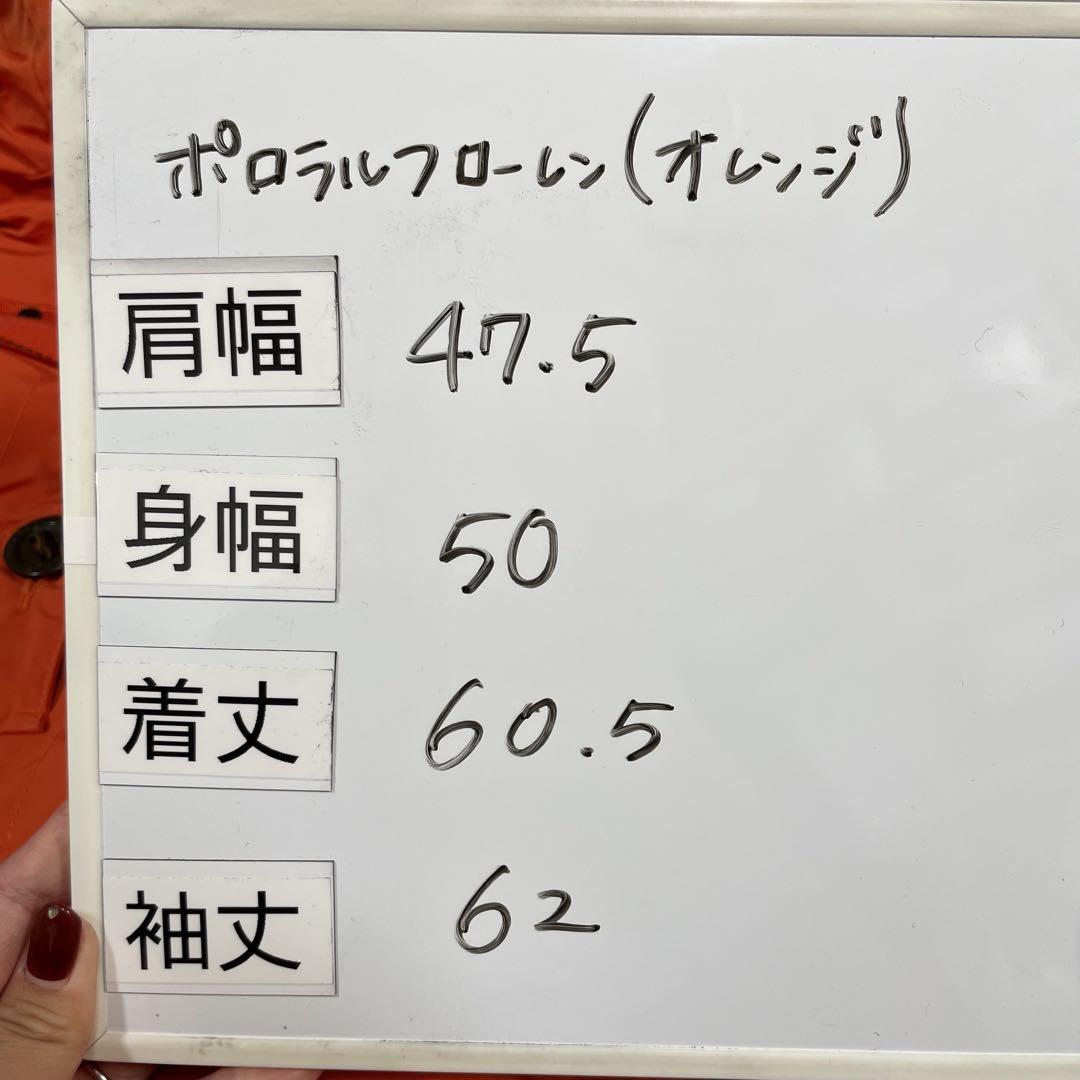 ポロラルフローレン(オレンジ)
肩幅 47.5
身幅 50
着丈 60.5
袖丈 62